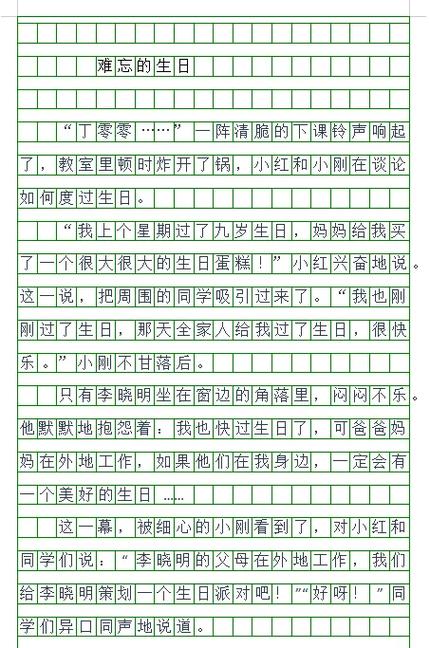 难忘的生日
“丁零零……”一阵清脆的下课铃声响起
了，教室里顿时炸开了锅，小红和小刚在谈论
如何度过生日。
“我上个星期过了九岁生日，妈妈给我买
了一个很大很大的生日蛋糕！”小红兴奋地说。
这一说，把周围的同学吸引过来了。“我也刚
刚过了生日，那天全家人给我过了生日，很快
乐。”小刚不甘落后。
只有李晓明坐在窗边的角落里，闷闷不乐。
他默默地抱怨着：我也快过生日了，可爸爸妈
妈在外地工作，如果他们在我身边，一定会有
一个美好的生日……
这一幕，被细心的小刚看到了，对小红和
同学们说：“李晓明的父母在外地工作，我们
给李晓明策划一个生日派对吧！”“好呀！”同
学们异口同声地说道。